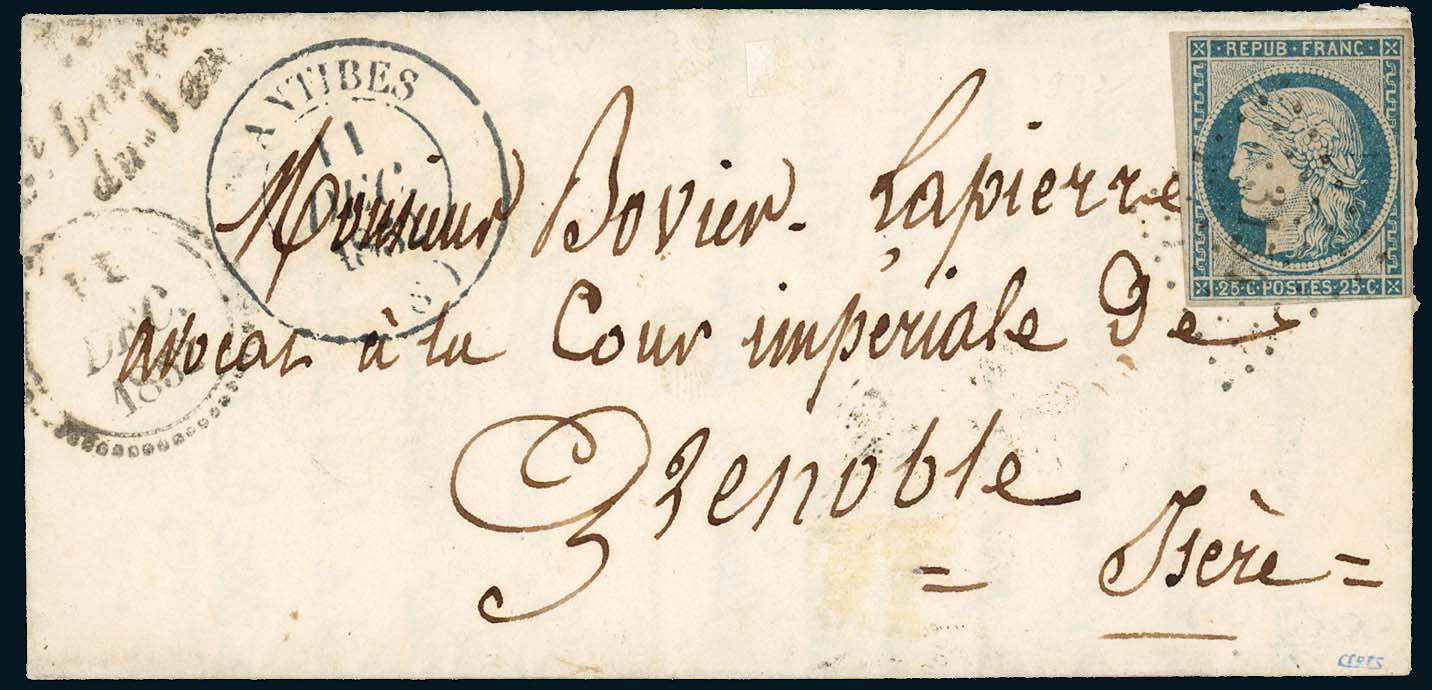 St Laurent
du-Var
ANTIBES
11
DEC
11
DEC.
185
REPUB·FRANC·
25·C·POSTES·25·C·
Monsieur Bovier-Lapierre
avocat à la Cour impériale De
Grenoble
=
Isère =
CERES